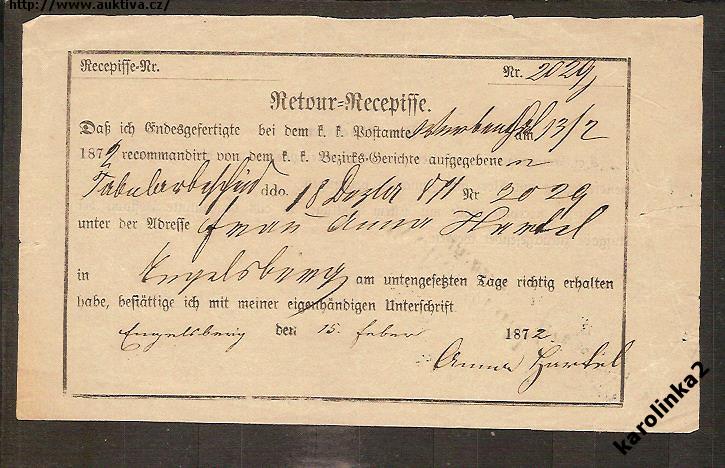 http://www.auktiva.cz/
Recepisse-Nr.
Nr. 2029
Retour-Recepisse.
Daß ich Endesgefertigte bei dem k. k. Postamte Wurbenthal am 13/2
1872 recommandirt von dem k. k. Bezirks-Gerichte aufgegebene n
Tabularbescheid ddo. 18 Dezber 871 Nr 2029
unter der Adresse Frau Anna Hartel
in Engelsberg am untengesetzten Tage richtig erhalten
habe, bestättige ich mit meiner eigenhändigen Unterschrift
Engelsberg den 15. Feber 1872.
Anna Hartel
karolinka2